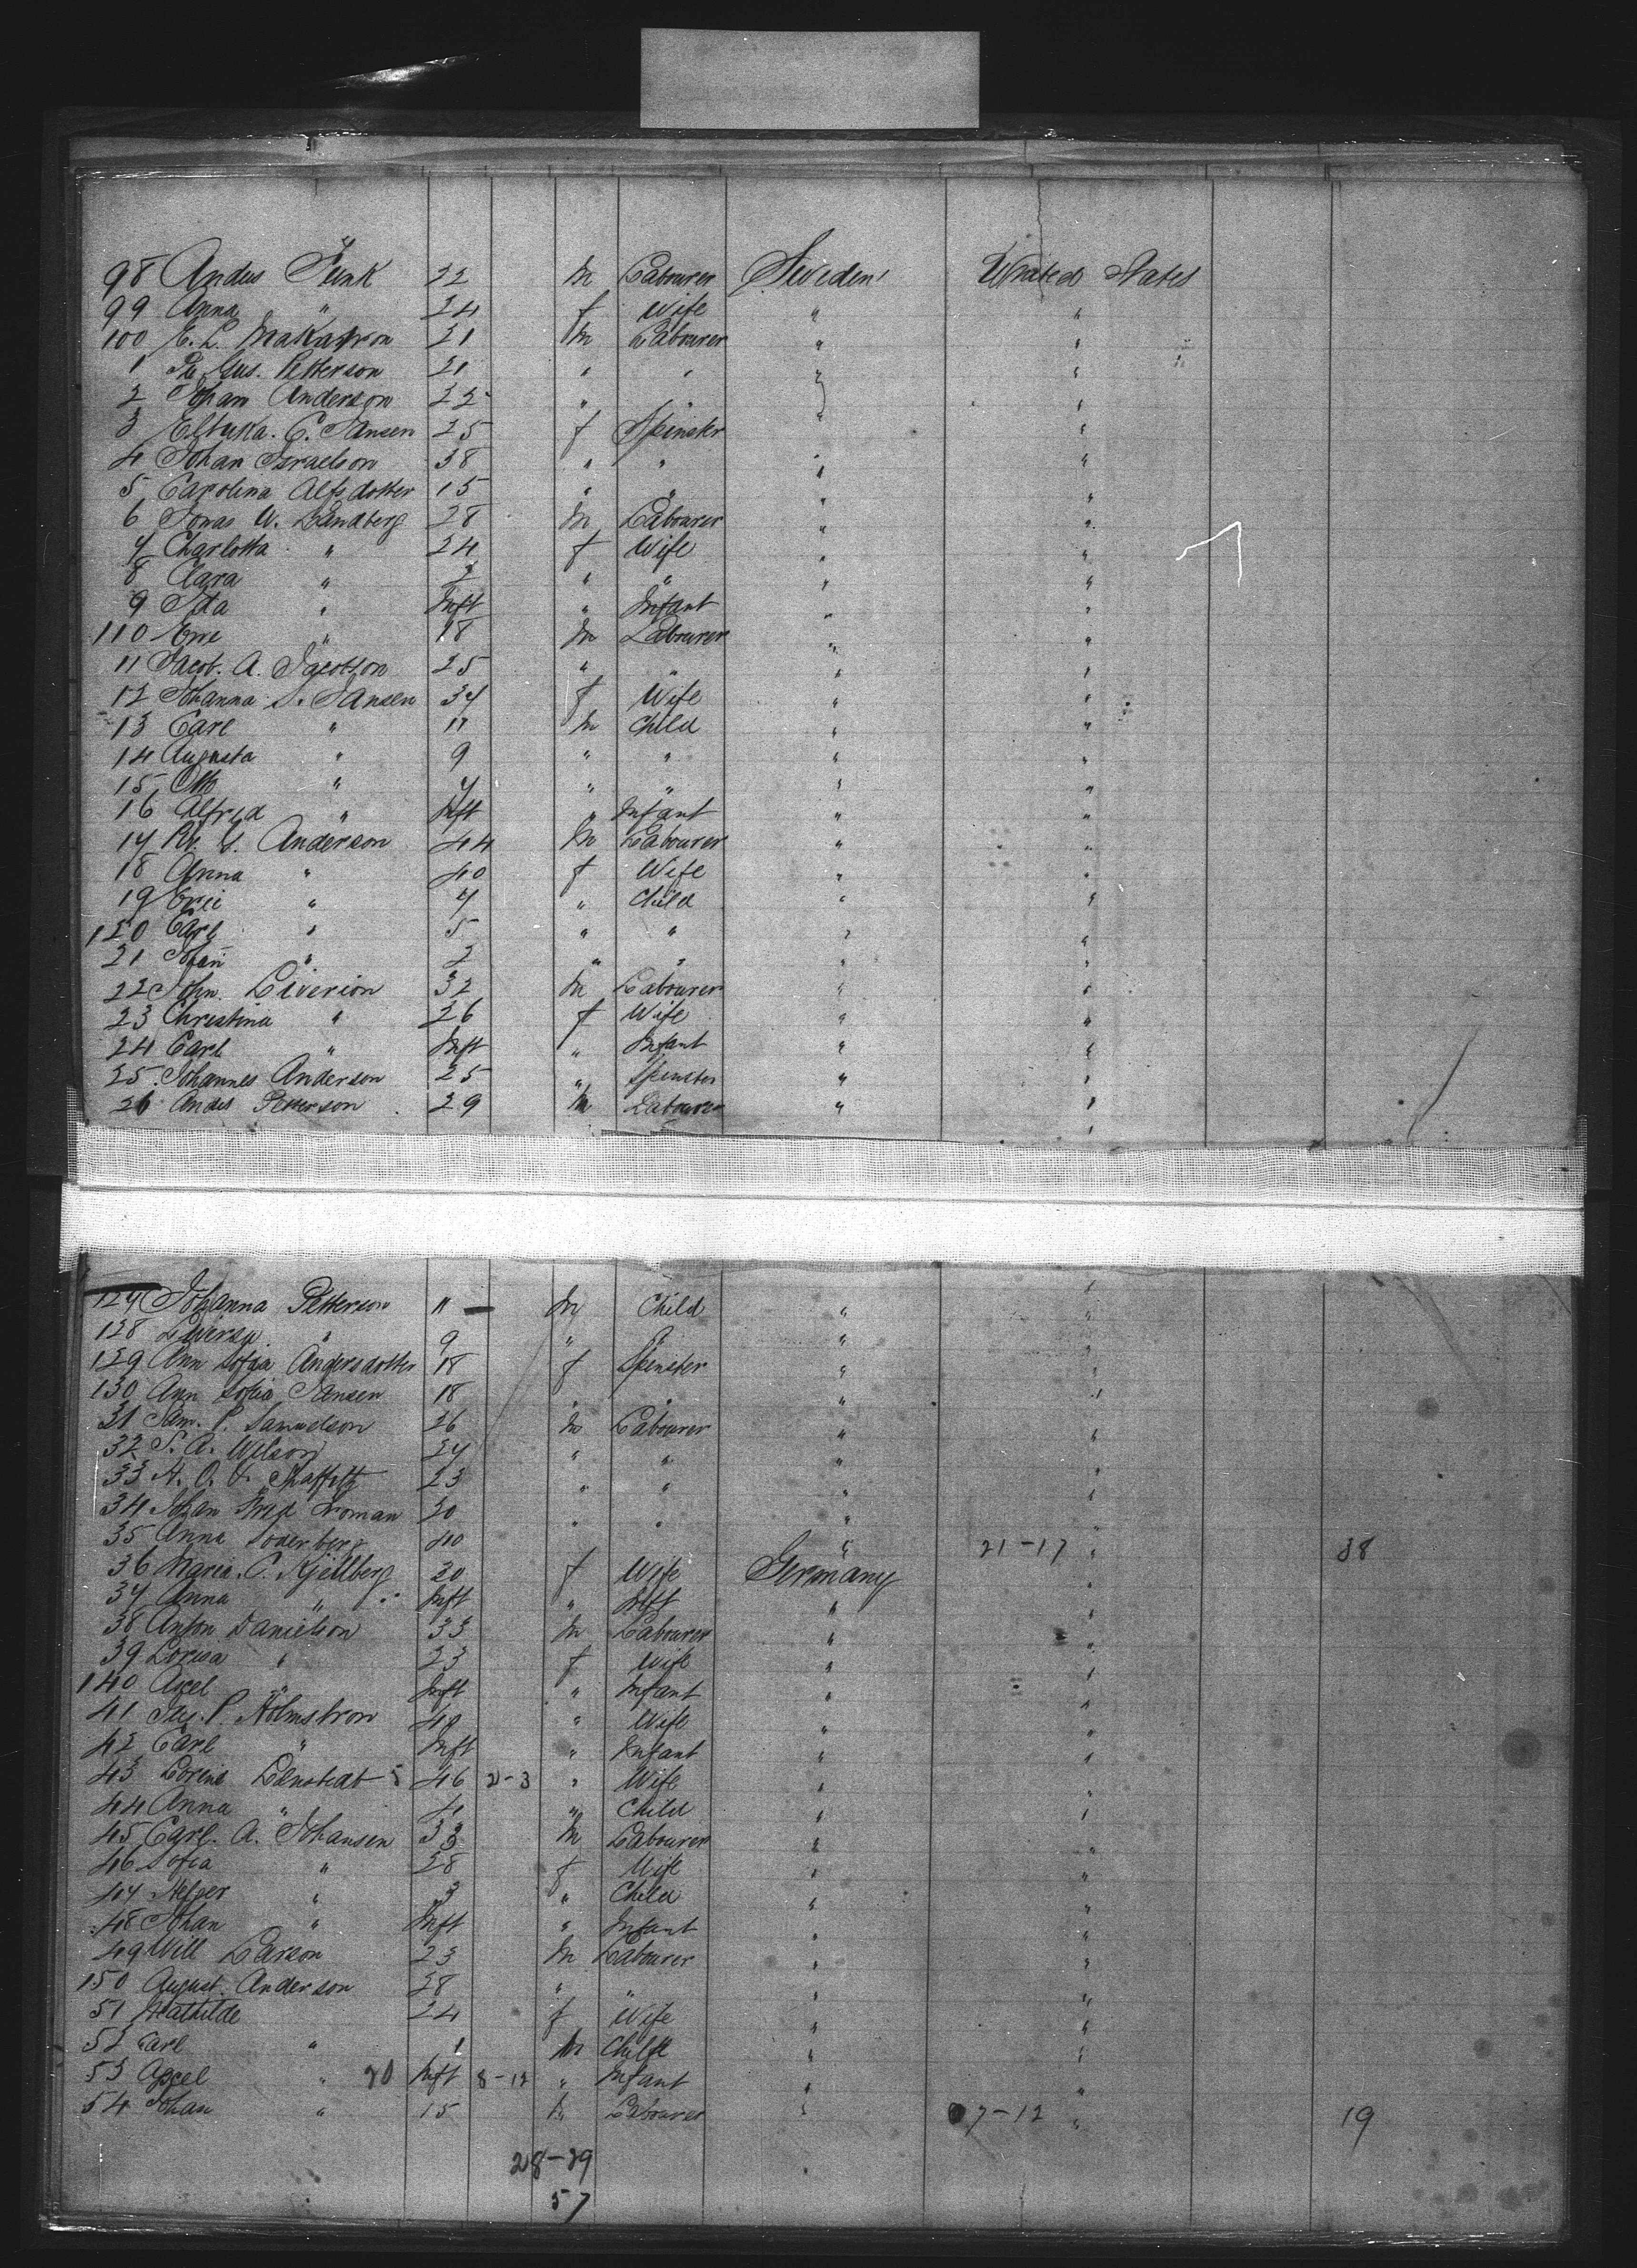 98 Andus Funk 22 m Labourer Sweden United States
99 Anna " 24 f Wife " "
100 E. L. 21 m Labourer " "
1 Gus. Petterson 21 " " " "
2 Johan Anderson 22 " " " "
3 C. Jansen 25 f Spinster " "
4 Johan Israelson 38 " " " "
5 Carolina Alfsdotter 15 " " " "
6 Jonas W. Sandberg 28 m Labourer " "
7 Charlotta " 24 f Wife " "
8 Clara " 2 " " " "
9 Ida " Inft " Infant " "
110 " 18 m Labourer " "
11 Jacob. A. Jacobson 25 " " " "
12 Johanna S. Jansen 37 f Wife " "
13 Carl " 11 m Child " "
14 Augusta " 9 " " " "
15 Otto " 7 " " " "
16 Alfrid " Inft " Infant " "
17 Anderson 44 m Labourer " "
18 Anna " 40 f Wife " "
19 Eric " 7 " Child " "
120 Carl " 5 " " " "
21 Johan " 2 " " " "
22 John Liverion 32 m Labourer " "
23 Christina " 26 f Wife " "
24 Carl " Inft " Infant " "
25 Johannes Anderson 25 " Spinster " "
26 Andes Petterson 29 m Labourer " "
127 Johanna Petterson 11 m Child " "
128 " 9 " " " "
129 Ann Sofia Andersdotter 18 f Spinster " "
130 Ann Sofia Jansen 18 " " " "
31 Sam. P. Samuelson 26 m Labourer " "
32 S. A. Wilson 27 " " " "
33 A. O. 23 " " " "
34 Johan Fred 20 " " " "
35 Anna Soderberg 40 " 21-17 " 38
36 Maria. C. Kjellberg 20 f Wife Germany "
37 Anna " Inft " Inft " "
38 Anton Danielson 33 m Labourer " "
39 Lovisa " 23 f Wife " "
140 Axel " Inft " Infant " "
41 P. Holmstron 40 " Wife " "
42 Carl " Inft " Infant " "
43 Lorens 46 2-3 " Wife " "
44 Anna " 4 " Child " "
45 Carl. A. Johansen 33 m Labourer " "
46 Sofia " 28 f Wife " "
47 Helger " 3 " Child " "
48 Johan " Inft " Infant " "
49 Will Larson 23 m Labourer " "
150 August Anderson 28 " " " "
51 Mathilde 24 f Wife " "
52 Carl " 1 m Child " "
53 Axcel " 20 Inft 8-12 " Infant " "
54 Johan " 15 m Labourer " 07-12 " 19
28-29
57